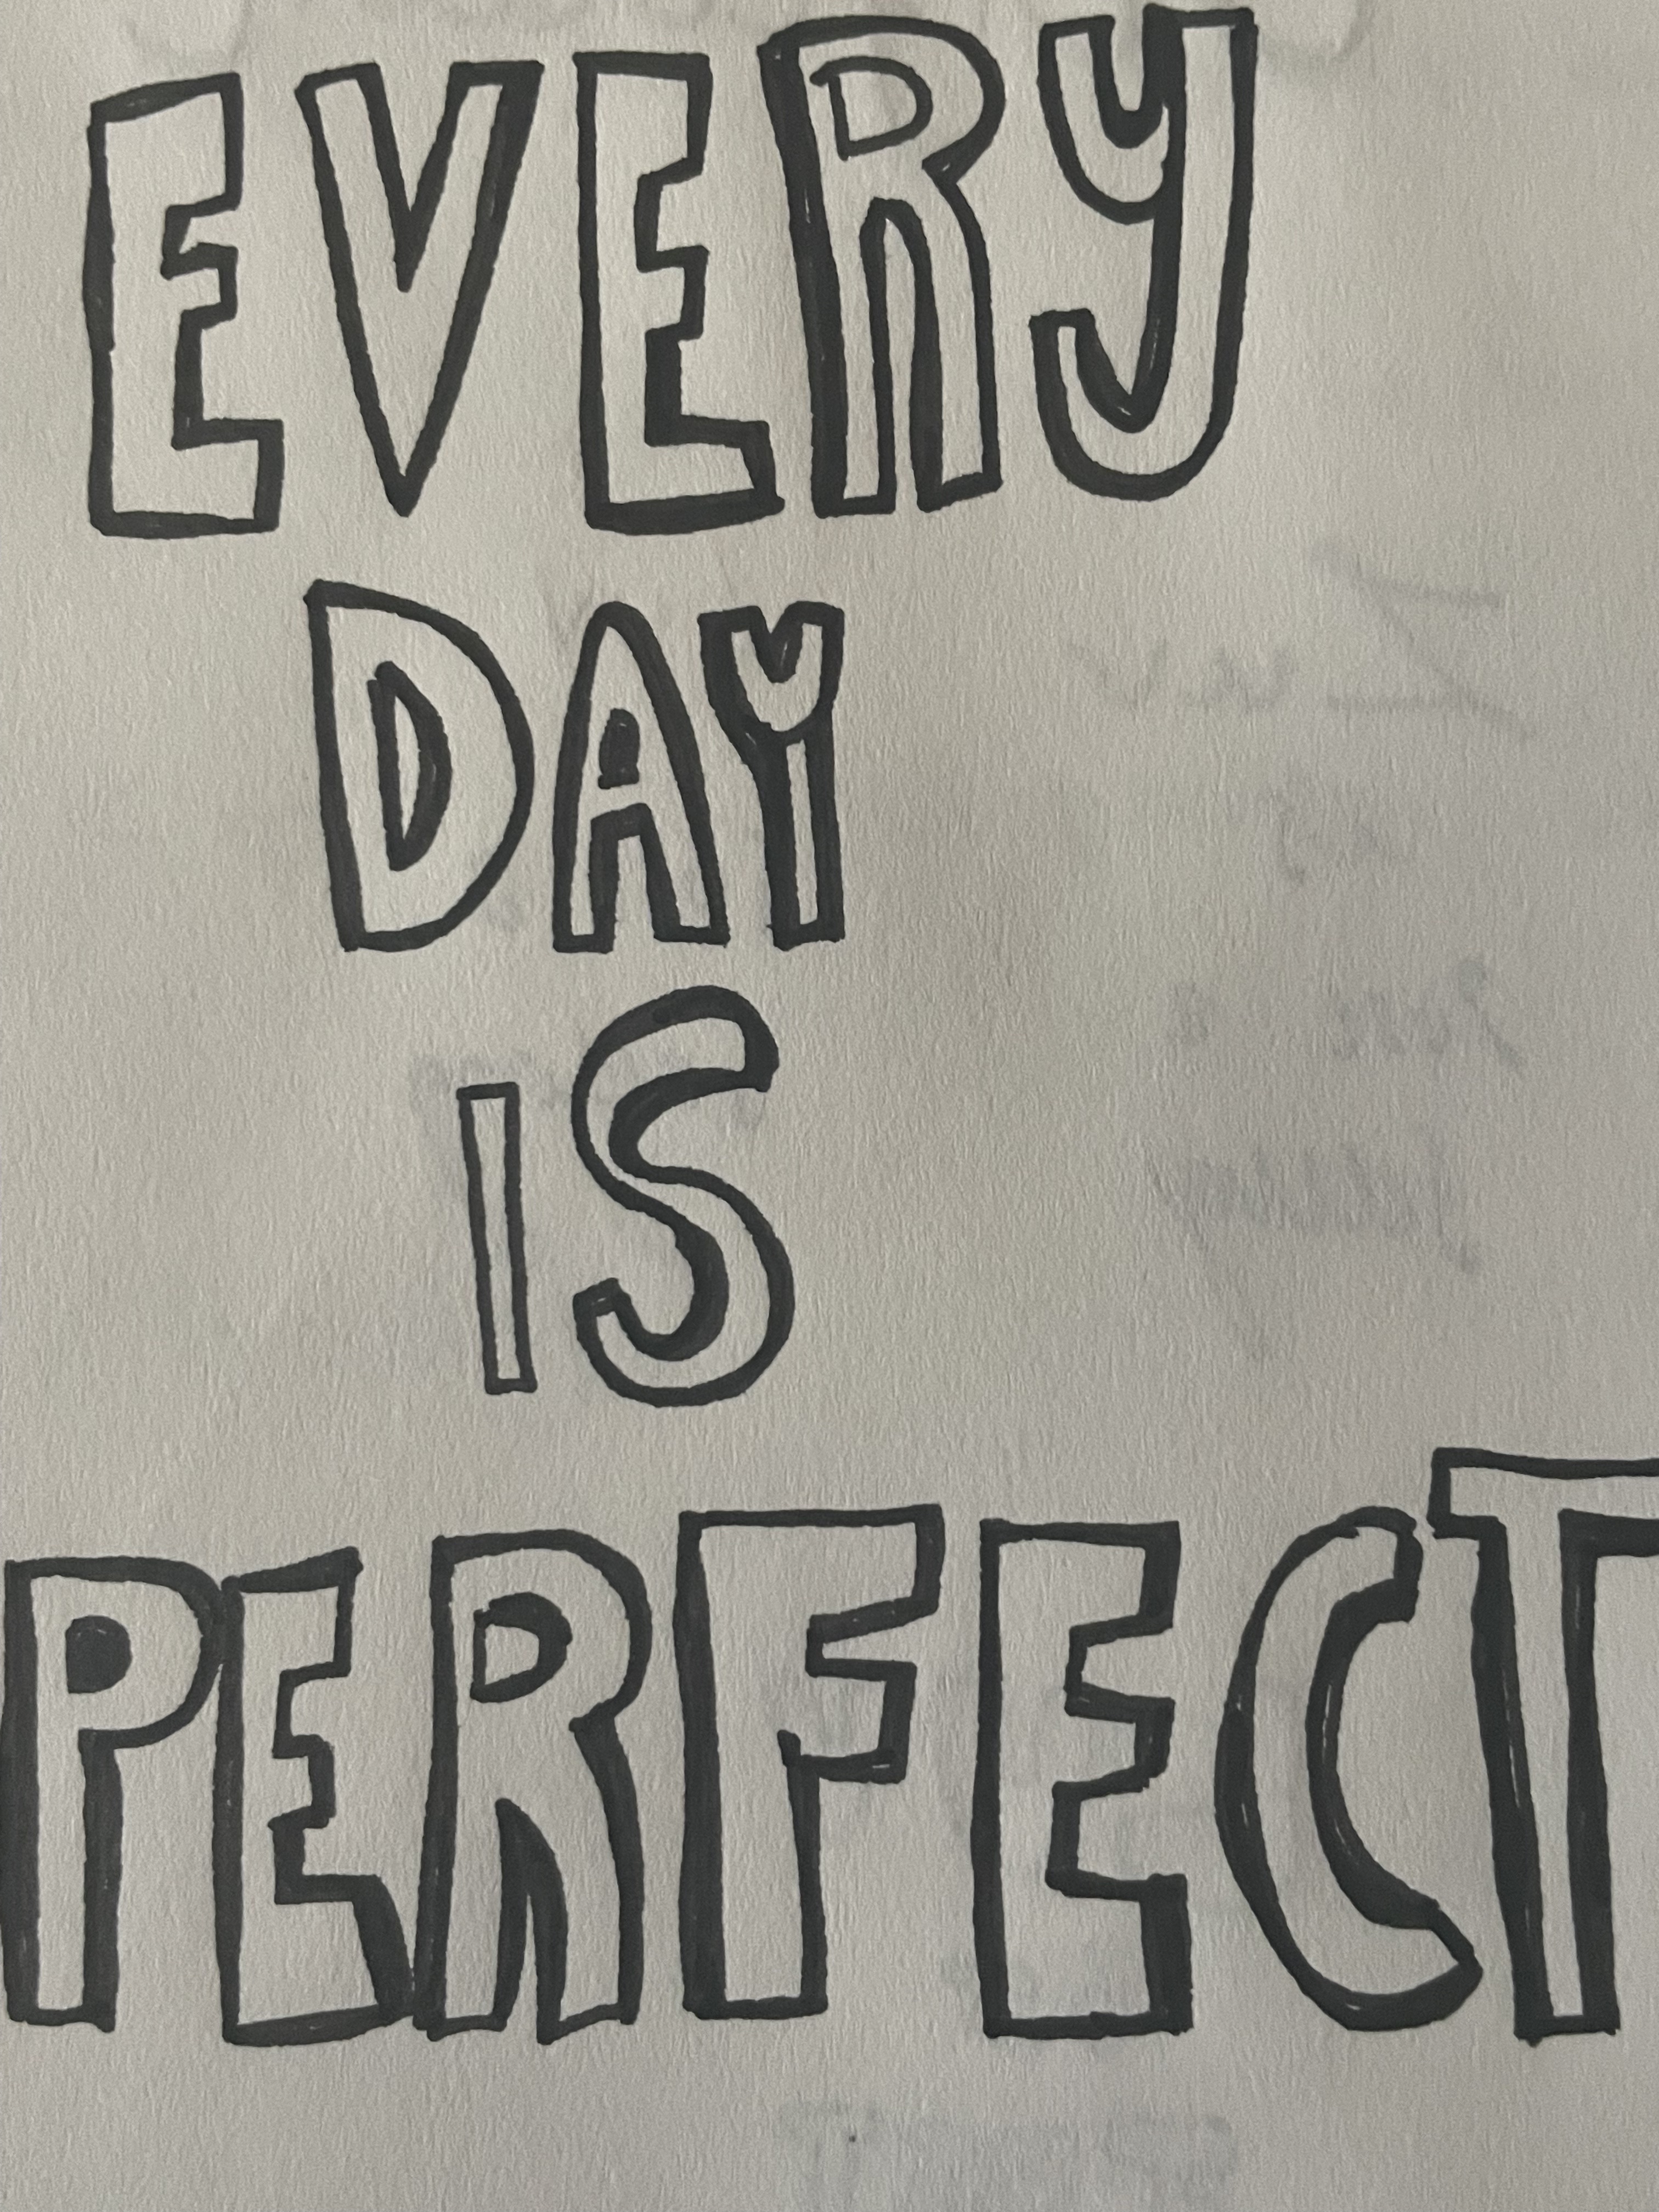 EVERY
DAY
IS
PERFECT